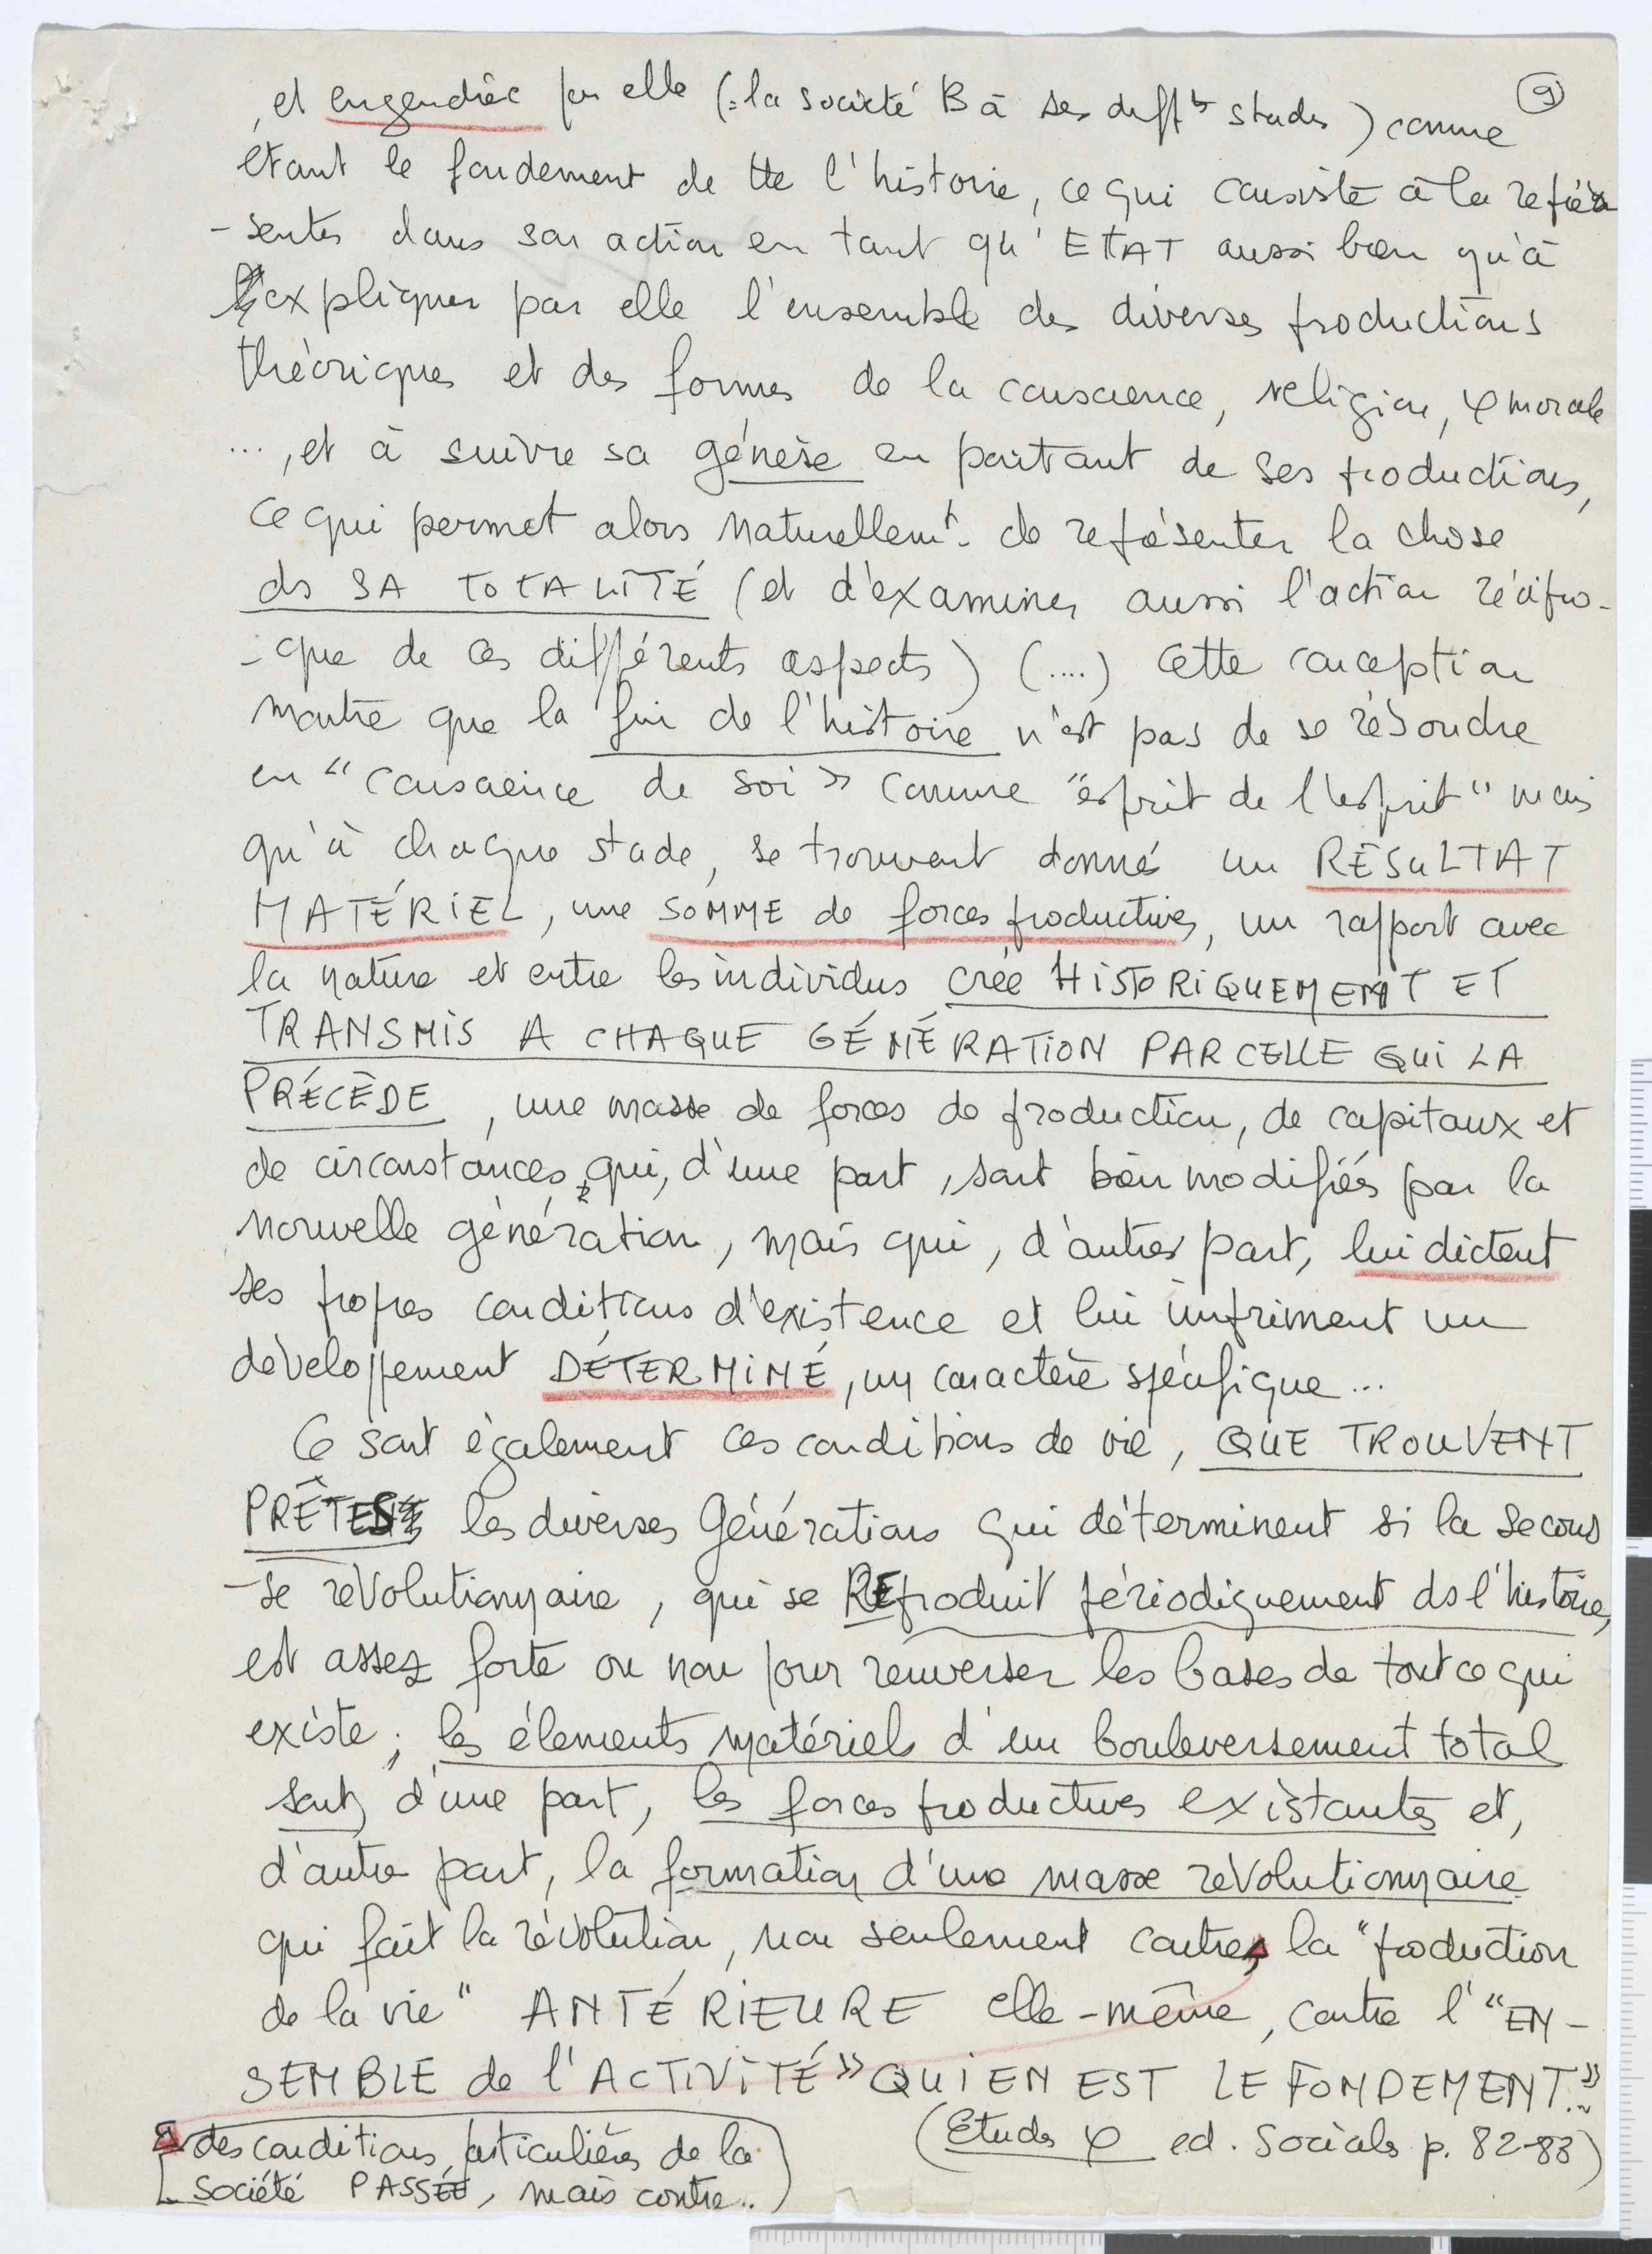 9
et engendrée par elle (= la société B à ses diffts stades) comme
étant le fondement de tte l'histoire, ce qui consiste à la repré
-senter dans son action en tant qu'ETAT aussi bien qu'à
expliquer par elle l'ensemble des diverses productions
théoriques et des formes de la conscience, religion, φ morale
..., et à suivre sa génèse en partant de ses productions,
ce qui permet alors naturellemt de représenter la chose
ds SA TOTALITÉ (et d'examiner aussi l'action récipro-
-que de ces différents aspects) (....) cette conception
montre que la fin de l'histoire n'est pas de se résoudre
en "conscience de soi" comme "esprit de l'esprit" mais
qu'à chaque stade, se trouvent donné un RÉSULTAT
MATÉRIEL, une SOMME de forces productives, un rapport avec
la nature et entre les individus créé HISTORIQUEMENT ET
TRANSMIS A CHAQUE GÉNÉRATION PAR CELLE QUI LA
PRÉCÈDE, une masse de forces de production, de capitaux et
de circonstances, qui, d'une part, sont bien modifiés par la
nouvelle génération, mais qui, d'autres part, lui dictent
ses propres conditions d'existence et lui impriment un
développement DÉTERMINÉ, un caractère spécifique...
Ce sont également ces conditions de vie, QUE TROUVENT
PRÊTES les diverses Générations qui déterminent si la secous
-se révolutionnaire, qui se REproduit périodiquement ds l'histoire,
est assez forte ou non pour renverser les bases de tout ce qui
existe; les élements matériels d'un bouleversement total
sont, d'une part, les forces productives existantes et,
d'autre part, la formation d'une masse révolutionnaire
qui fait la révolution, non seulement contre la "production
de la vie" ANTÉRIEURE elle-même, contre l'"EN-
SEMBLE de l'ACTIVITÉ" QUI EN EST LE FONDEMENT."
(Etudes φ ed. Sociales p. 82-83)
des conditions particulières de la
société PASSÉE, mais contre..